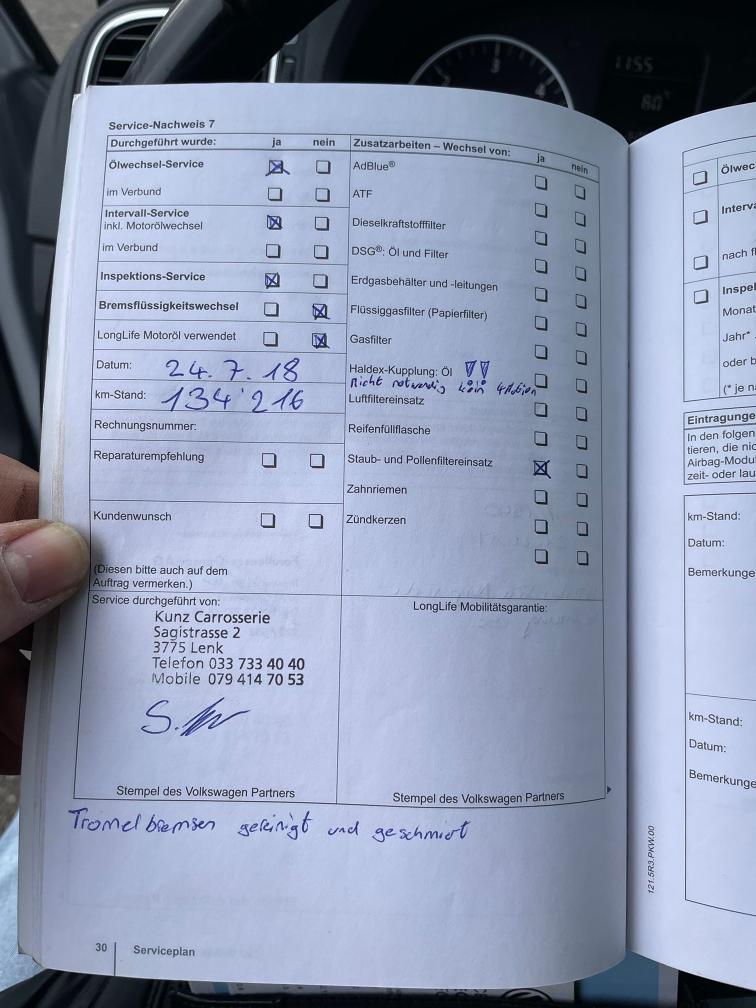 Service-Nachweis 7
Durchgeführt wurde: ja nein
Ölwechsel-Service
im Verbund
Intervall-Service
inkl. Motorölwechsel
im Verbund
Inspektions-Service
Bremsflüssigkeitswechsel
LongLife Motoröl verwendet
Datum: 24.7.18
km-Stand: 134'216
Rechnungsnummer:
Reparaturempfehlung
Kundenwunsch
(Diesen bitte auch auf dem
Auftrag vermerken.)
Zusatzarbeiten – Wechsel von: ja nein
AdBlue®
ATF
Dieselkraftstofffilter
DSG®: Öl und Filter
Erdgasbehälter und -leitungen
Flüssiggasfilter (Papierfilter)
Gasfilter
Haldex-Kupplung: Öl !!
Nicht notwendig kein 4Motion
Luftfiltereinsatz
Reifenfüllflasche
Staub- und Pollenfiltereinsatz
Zahnriemen
Zündkerzen
Service durchgeführt von:
Kunz Carrosserie
Sägistrasse 2
3775 Lenk
Telefon 033 733 40 40
Mobile 079 414 70 53
Stempel des Volkswagen Partners
LongLife Mobilitätsgarantie:
Stempel des Volkswagen Partners
Tromelbremsen gereinigt und geschmiert
30 Serviceplan
121.5R3.PKW.00
Ölwec
Interva
nach f
Inspel
Monat
Jahr*
oder b
(* je na
Eintragunge
In den folgen
tieren, die nic
Airbag-Modu
zeit- oder lau
km-Stand:
Datum:
Bemerkunge
km-Stand:
Datum:
Bemerkunge
1155
80